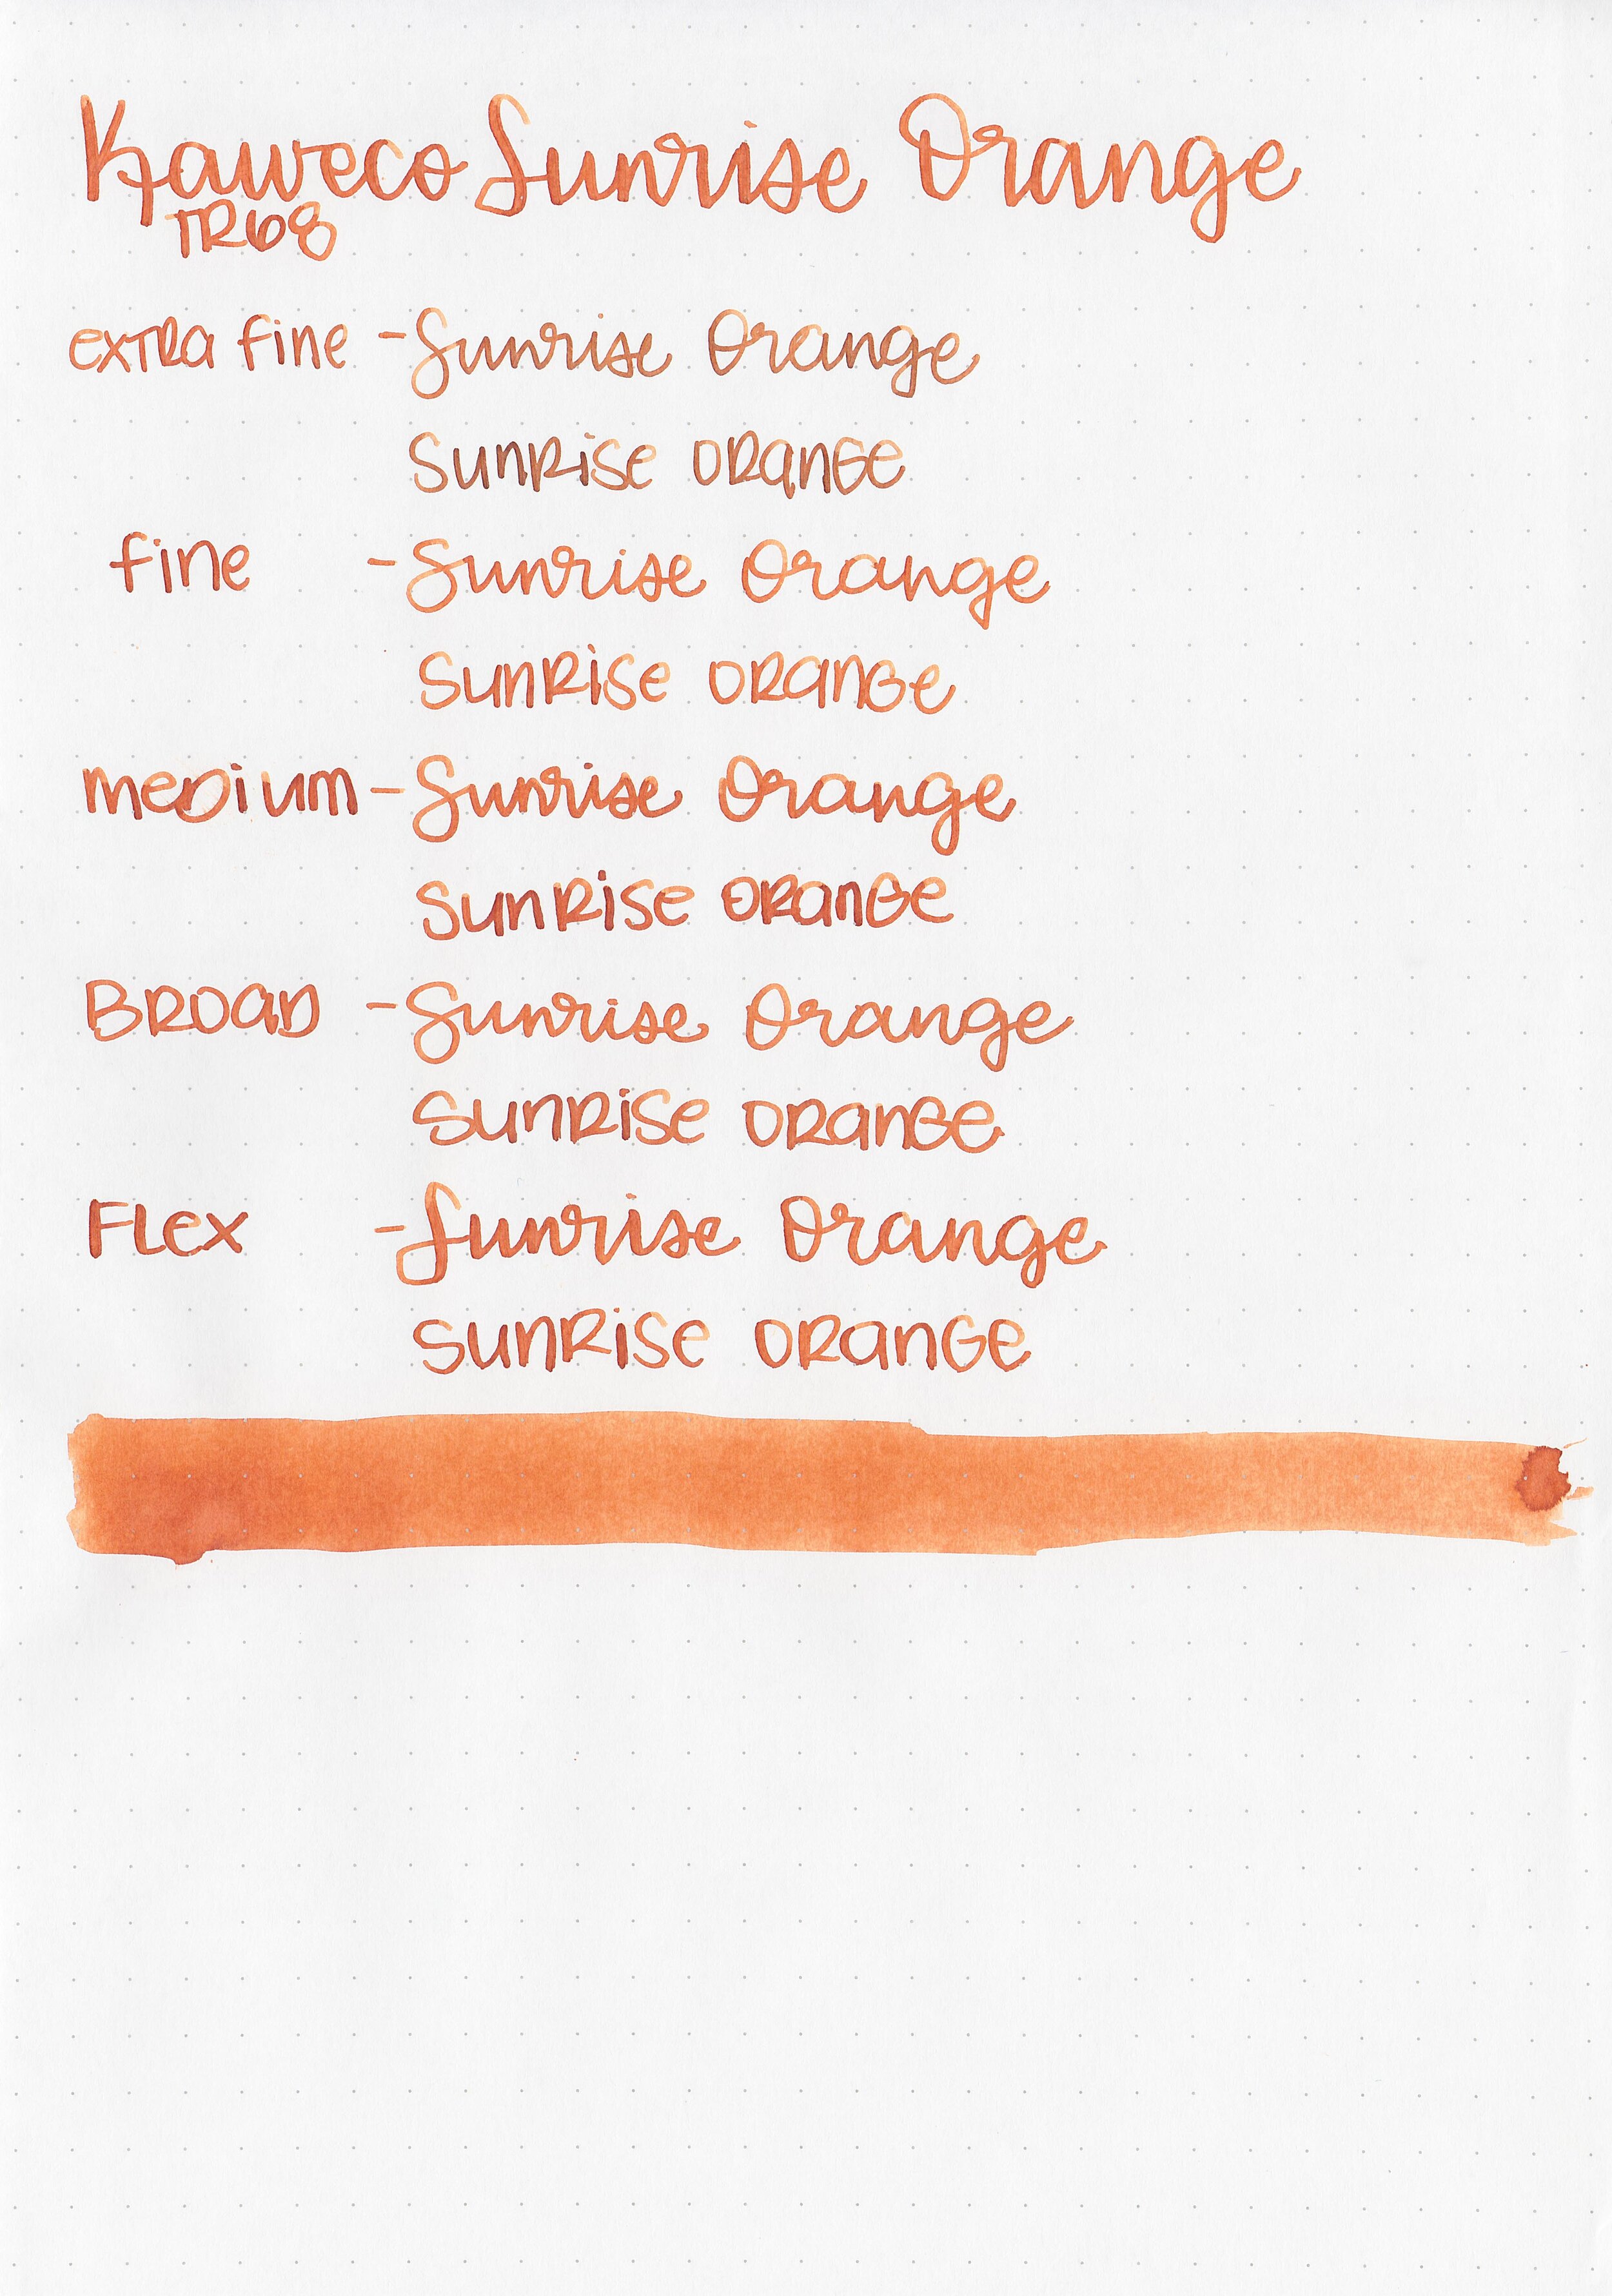 Kaweco Sunrise Orange
TR68
extra fine - Sunrise Orange
Sunrise Orange
fine - Sunrise Orange
Sunrise Orange
medium - Sunrise Orange
Sunrise Orange
Broad - Sunrise Orange
Sunrise Orange
Flex - Sunrise Orange
Sunrise Orange